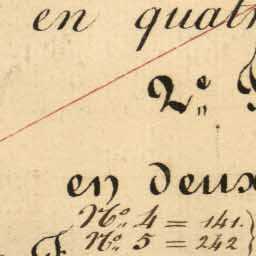 en quatr
2.e
en deux
No. 4 = 141.
No. 5 = 242